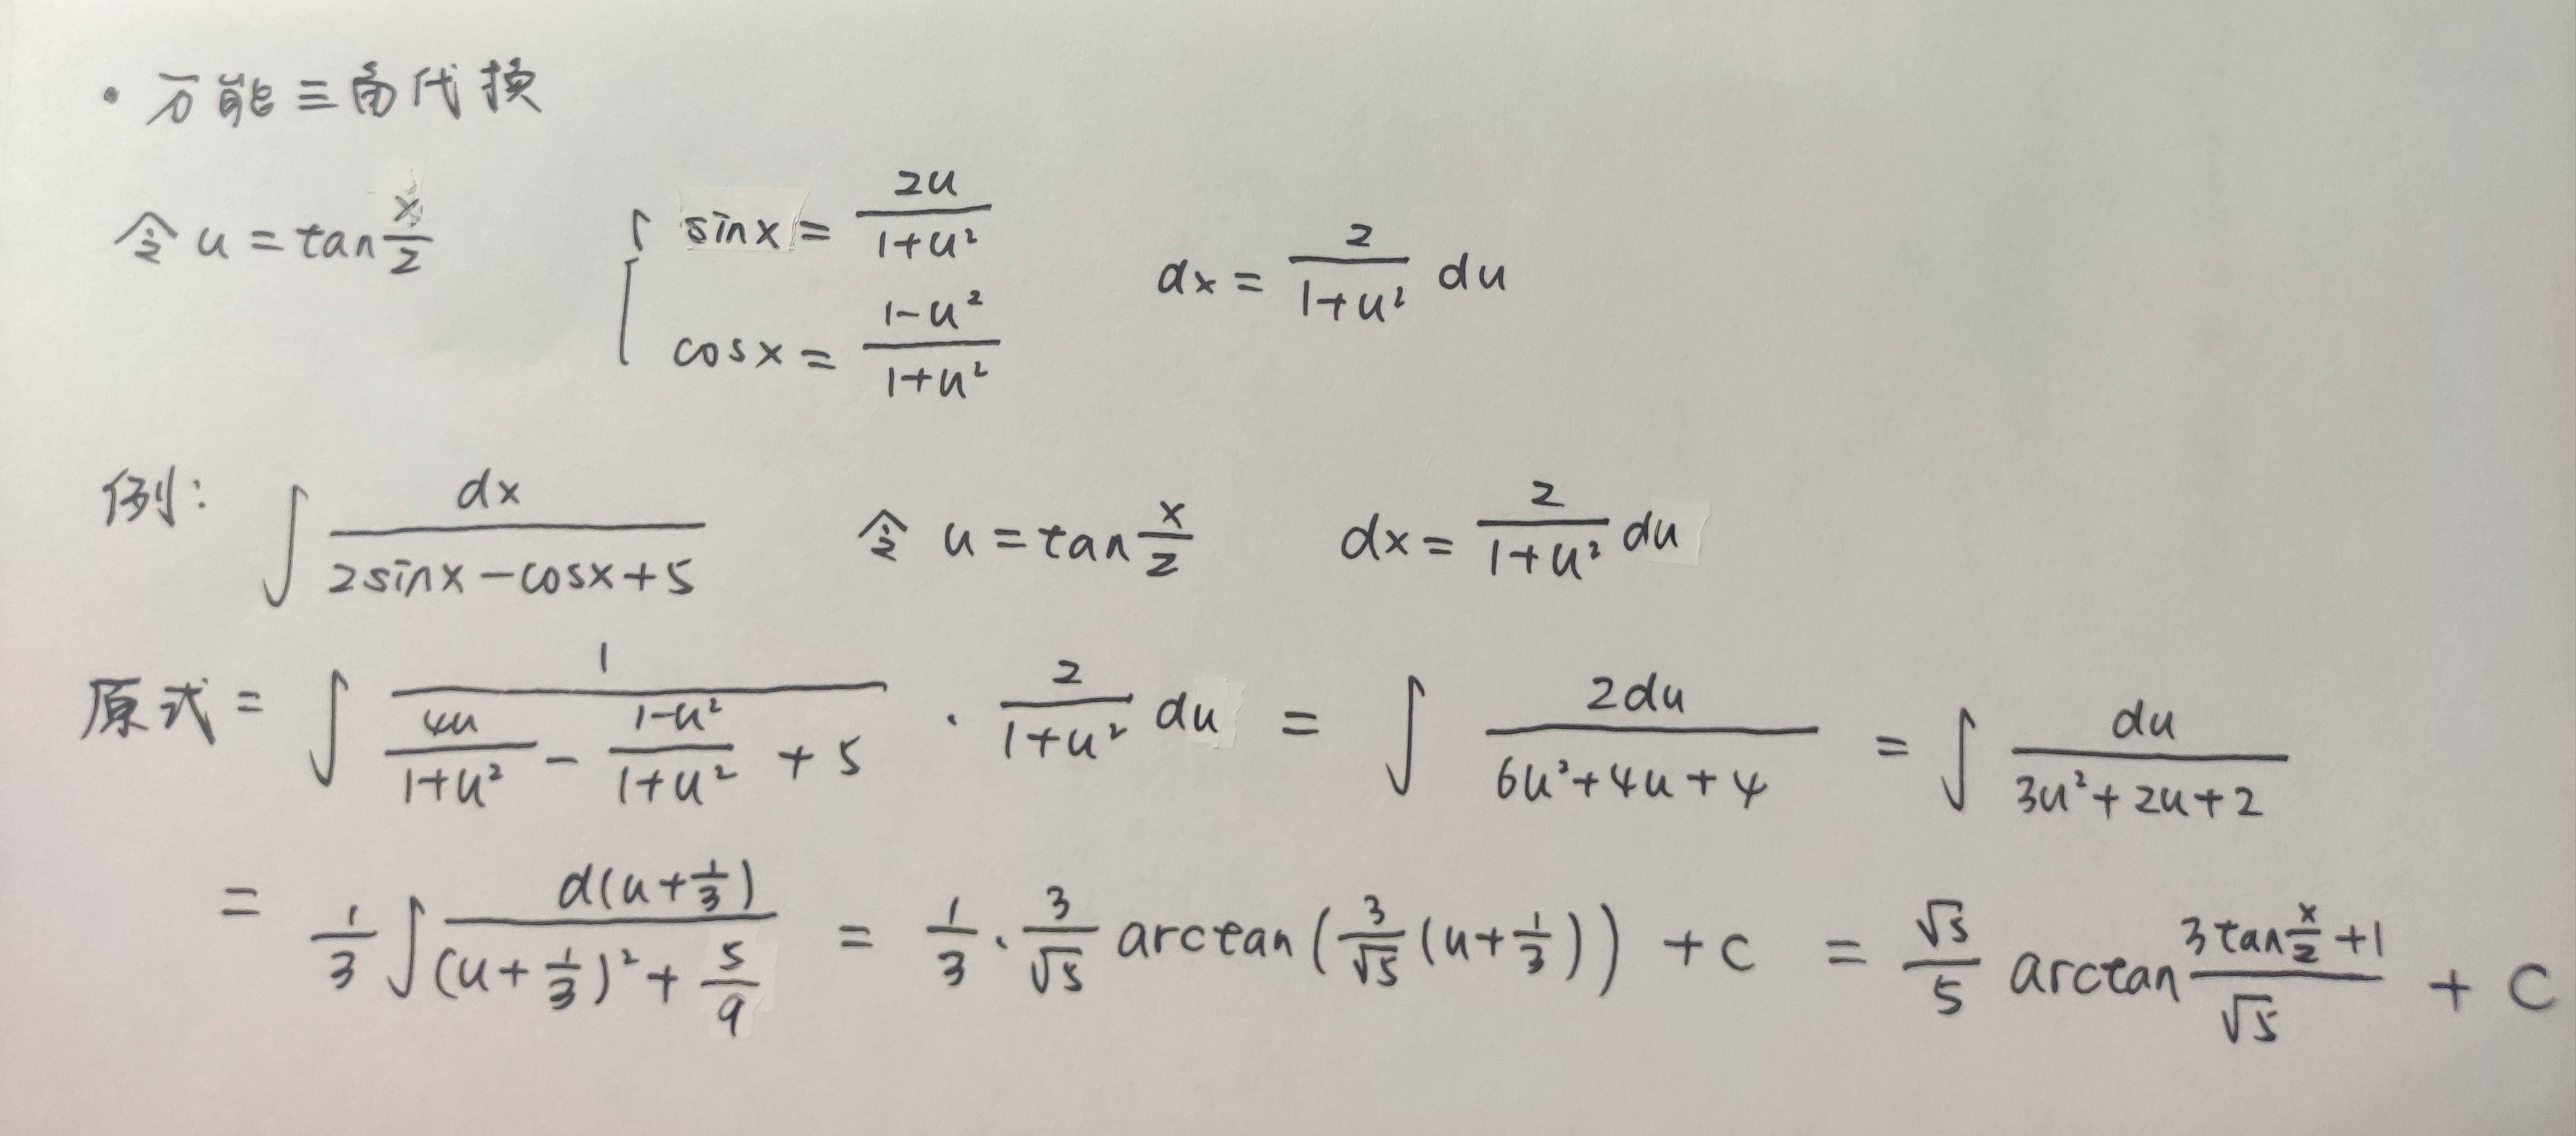 · 万能三角代换
令 u = tan x/2 { sinx = 2u/(1+u²) cosx = (1-u²)/(1+u²) dx = 2/(1+u²) du
例: ∫ dx/(2sinx-cosx+5) 令 u = tan x/2 dx = 2/(1+u²) du
原式 = ∫ 1/(4u/(1+u²) - (1-u²)/(1+u²) + 5) · 2/(1+u²) du = ∫ 2du/(6u²+4u+4) = ∫ du/(3u²+2u+2)
= 1/3 ∫ d(u+1/3)/((u+1/3)²+5/9) = 1/3 · 3/√5 arctan(3/√5 (u+1/3)) + C = √5/5 arctan (3tan x/2 +1)/√5 + C